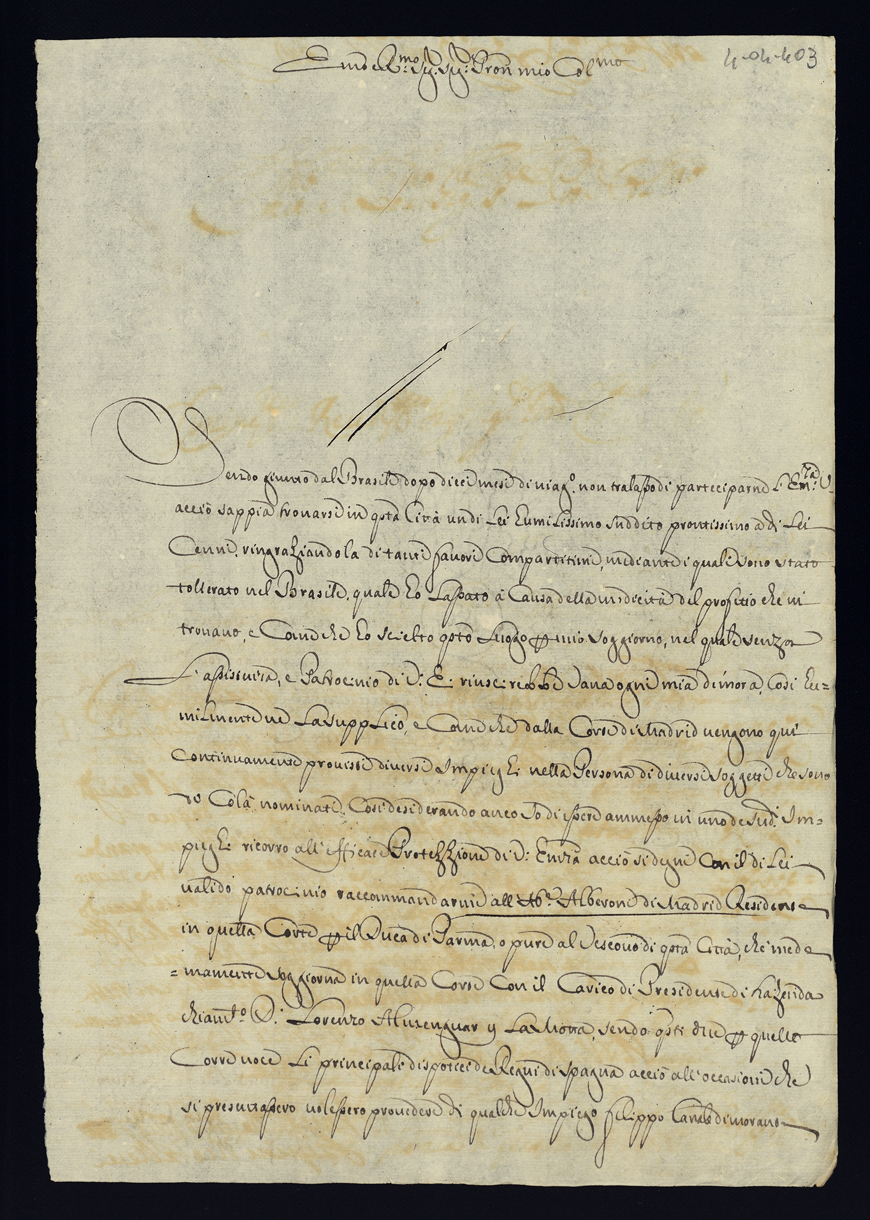 Em̃o e R.mo Sig. Sig. Pron mio Col.mo
4-04-403
Sendo giunto dal Brasile dopo dieci mesi di viag.o non tralasso di parteciparne l'Em.za V.
acciò sappia trovarsi in q̃sta Città un di Lei humilissimo suddito prontissimo a di Lei
Cenni, ringraziandola di tanti favori Compartitimi, mediante i quali sono stato
tollerato nel Brasile, quale ho Lassato à Causa della modicità del profitto che vi
trovavo, e Come che ho scielto q̃sto Luogo p mio soggiorno, nel quale senza
L'assistenza, e Patrocinio di V. E. riuscirebbe vana ogni mia dimora, Così hu=
milmente ne La supplico, e Come che dalla Corte di Madrid vengono qui
Continuamente provisti diversi Impieghi nella Persona di diversi soggetti che sono
Colà nominati, Cosi desiderando anco Io di essere ammesso in uno de sud.i Im=
pieghi ricorro all'efficace Protezzione di V. Em̃za acciò si degni Con il di Lei
valido patrocinio raccommandarmi all'Ab.e Alberone di Madrid Residente
in quella Corte p il Duca di Parma, o pure al Vescovo di q̃sta Città, che mede
=mamente soggiorna in quella Corte Con il Carico di Presidente di hazienda
chiam.to D. Lorenzo Armenguar y La Motta, sendo q̃sti due p quello
Corre voce Li principali dispotici de Regni di Spagna acciò all'occasioni che
si presentassero volessero provedere di qualche Impiego Filippo Canale dimorante